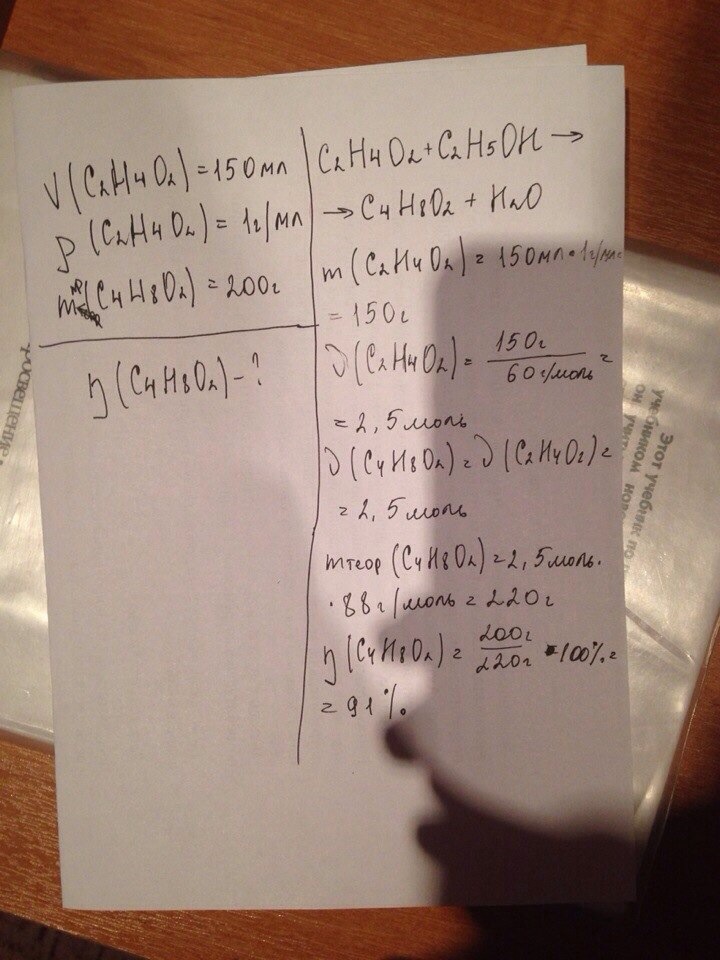 V(C2H4O2)=150мл
ρ(C2H4O2)=1г/мл
mпр(C4H8O2)=200г
η(C4H8O2)-?
C2H4O2+C2H5OH→
→C4H8O2+H2O
m(C2H4O2)=150мл·1г/мл=
=150г
ν(C2H4O2)=150г/60г/моль=
=2,5моль
ν(C4H8O2)=ν(C2H4O2)=
=2,5моль
mтеор(C4H8O2)=2,5моль·
·88г/моль=220г
η(C4H8O2)=200г/220г·100%=
=91%.
Этот учебник по
учебником